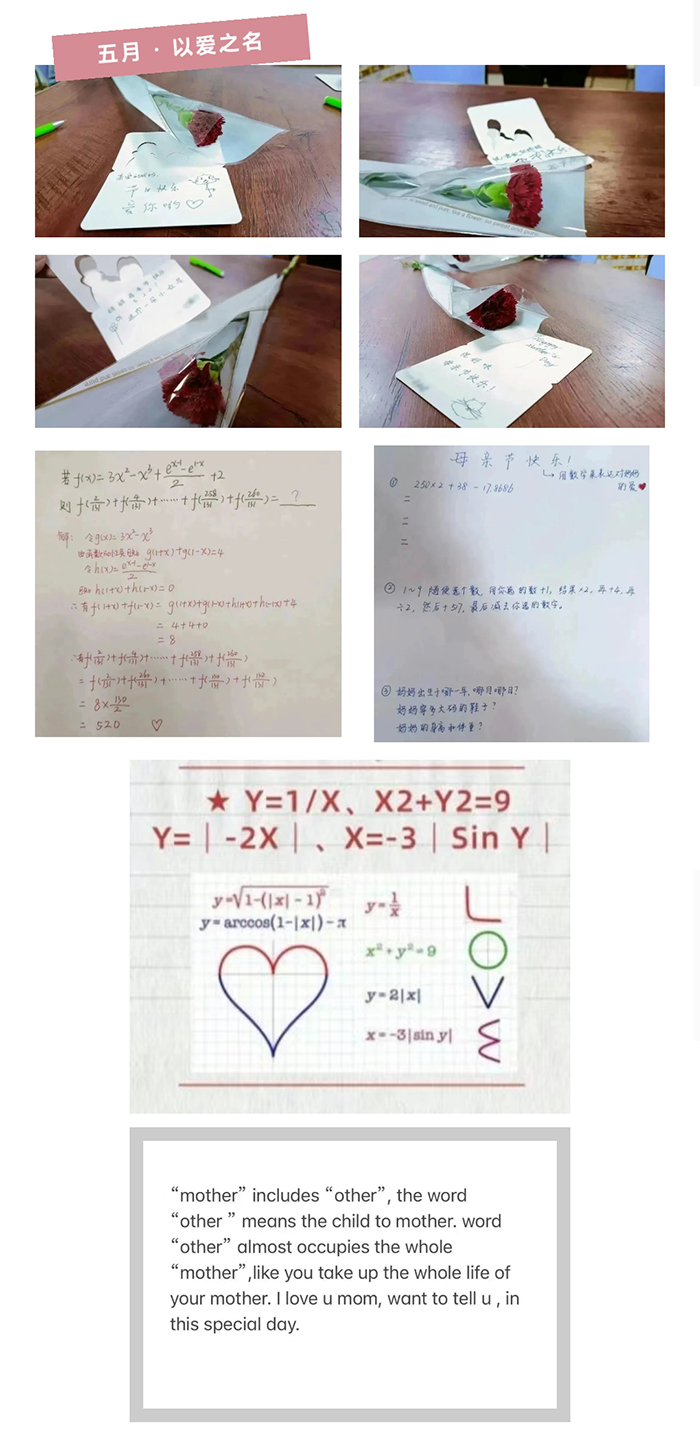 五月 · 以爱之名
节日快乐
爱你哟♡
Happy
Mother's
Day
母亲节快乐!
若 f(x)=3x²-x³+(e^(x-1)-e^(1-x))/2+2
则 f(2/131)+f(4/131)+……+f(258/131)+f(260/131)=__?__
解: 令g(x)=3x²-x³
g(1+x)+g(1-x)=4
令h(x)=(e^(x-1)-e^(1-x))/2
h(1+x)+h(1-x)=0
∴有f(1+x)+f(1-x)=g(1+x)+g(1-x)+h(1+x)+h(1-x)+4
=4+4+0
=8
f(2/131)+f(4/131)+……+f(258/131)+f(260/131)
=f(2/131)+f(260/131)+……+f(130/131)+f(132/131)
=8×130/2
=520 ♡
母亲节快乐!
用数学来表达对妈妈
的爱♥
① 250×2+38-17.8686
=
=
=
② 1~9 随便选个数,用你选的数+1,结果×2,再+4,再
÷2,然后+517,最后减去你选的数字。
③ 妈妈出生于哪一年,哪月哪日?
妈妈穿多大码的鞋子?
妈妈的身高和体重?
★ Y=1/X、X2+Y2=9
Y=|-2X|、X=-3|Sin Y|
y=√1-(|x|-1)²
y=arccos(1-|x|)-π
y=1/x
x²+y²=9
y=2|x|
x=-3|sin y|
“mother” includes “other”, the word
“other ” means the child to mother. word
“other” almost occupies the whole
“mother”,like you take up the whole life of
your mother. I love u mom, want to tell u , in
this special day.